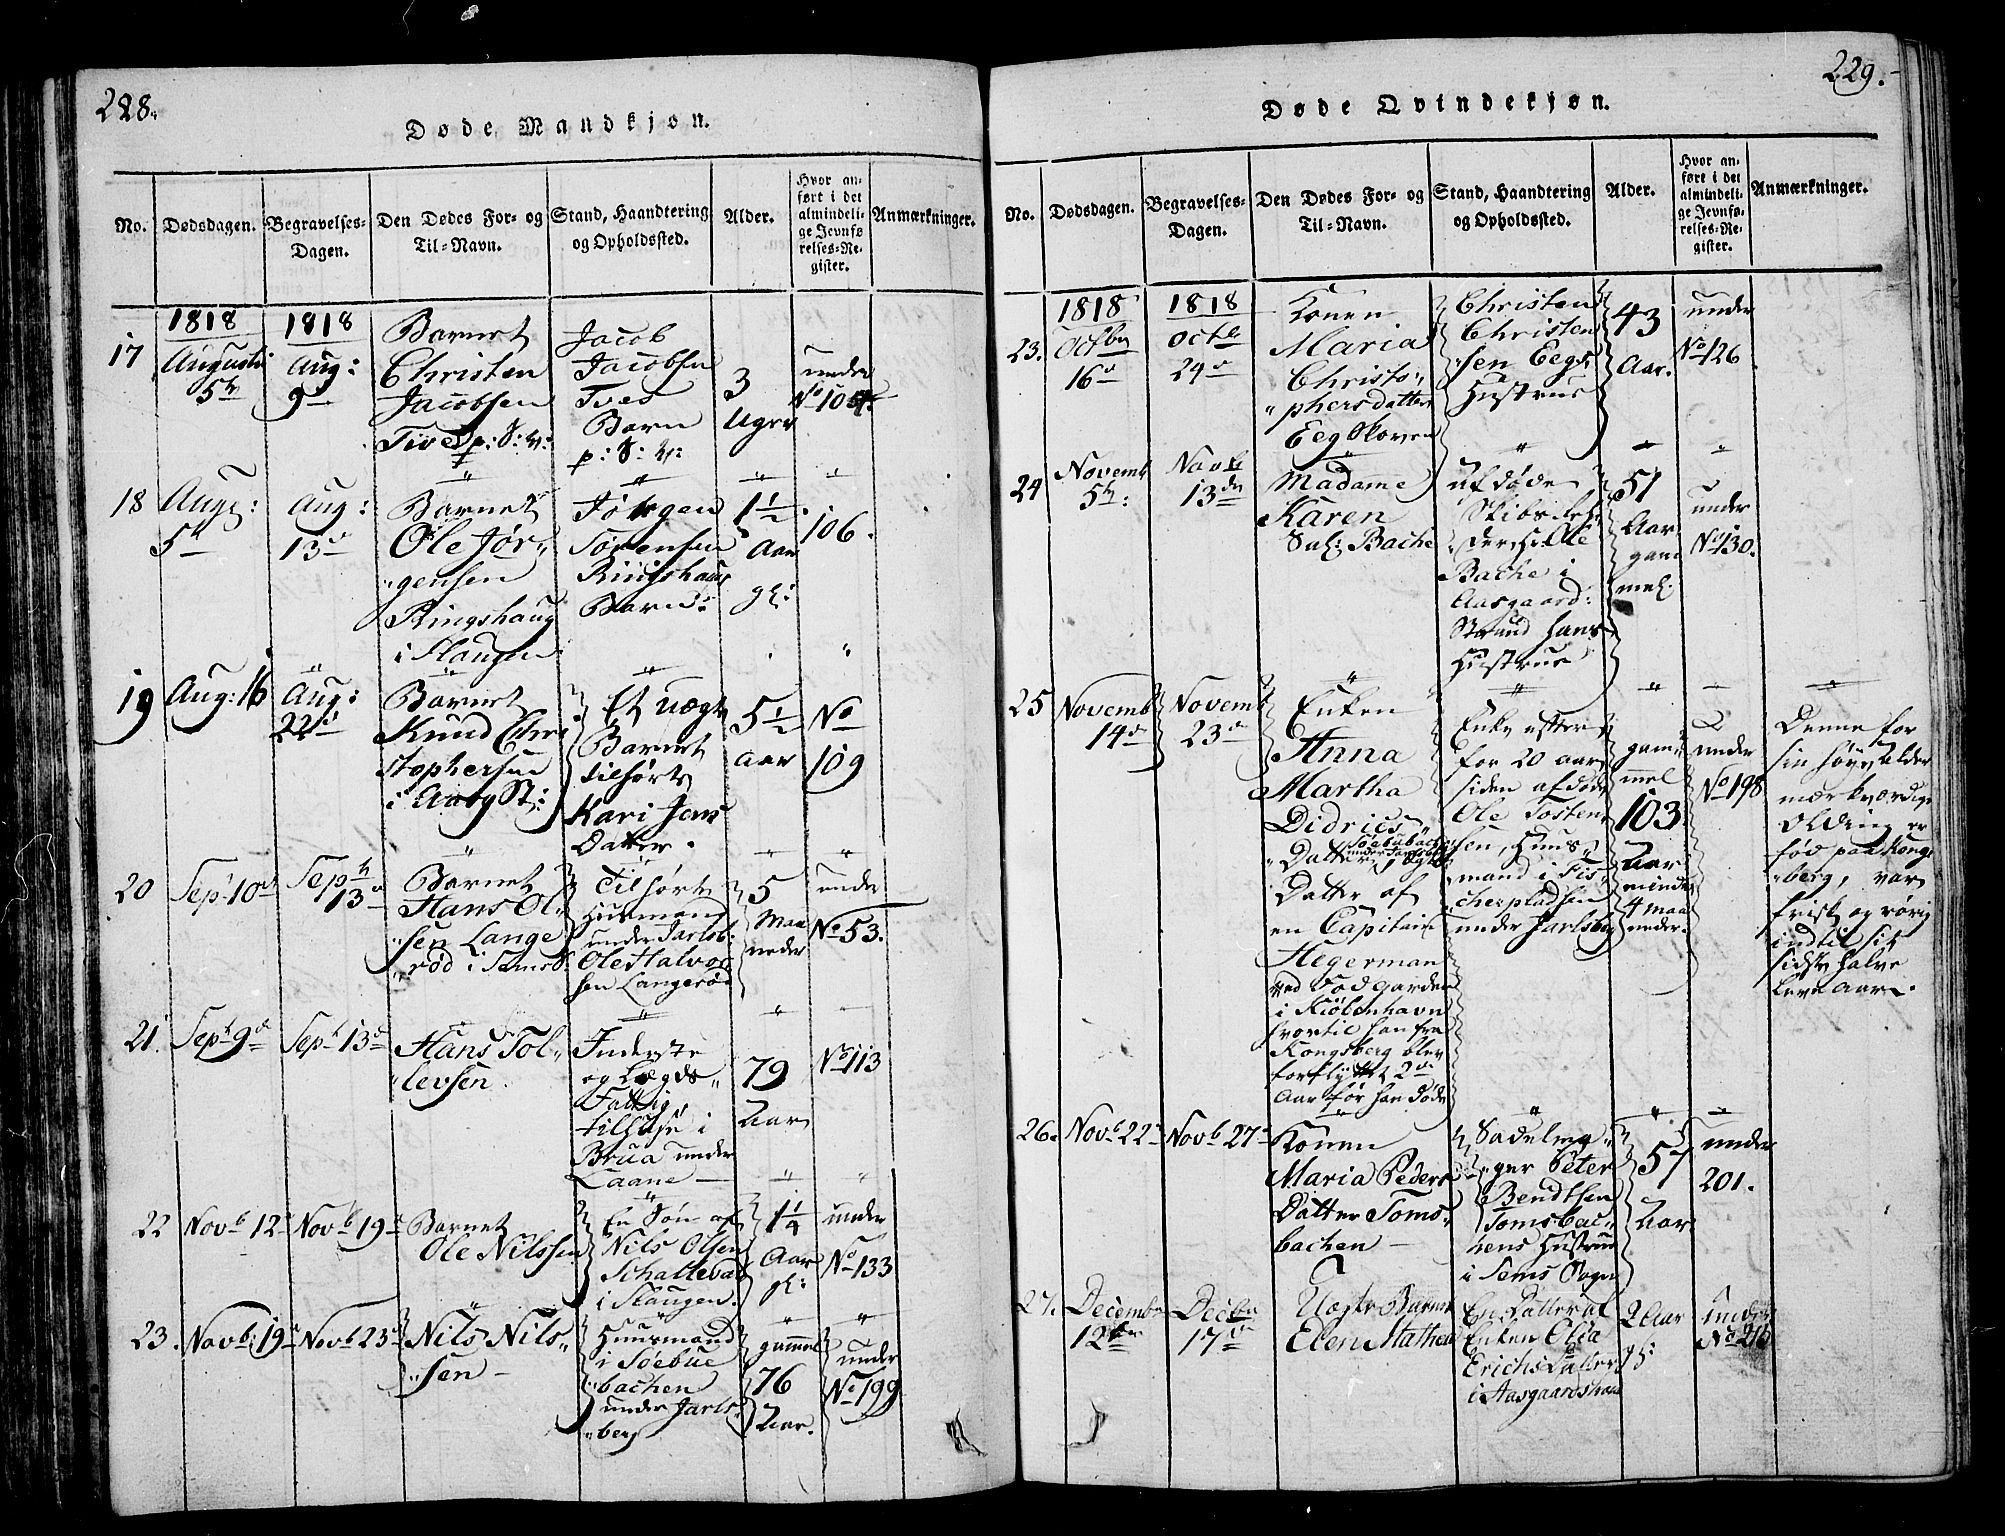 228.
Døde Mandkjøn.
No.
Dødsdagen.
Begravelses-
Dagen.
Den Dødes For- og
Til-Navn.
Stand, Haandtering
og Opholdssted.
Alder.
Hvor an-
ført i det
almindeli-
ge Jevnfø-
relses-Re-
gister.
Anmærkninger.
17
1818
Augusti
5te
1818
Aug:
9de
Barnet
Christen
Jacobsen
Tved p: S: v:
Jacob
Jacobsen
Tves
Barn
p: S: v:
3
Uger
under
No 105
18
Aug:
5te
Aug:
13de
Barnet
Ole Jør-
gensen
Ringshaug
i Slaugen
Jörgen
Sörensen
Ringshaug
Barn
1½
Aar
gl:
106.
19
Aug: 16
Aug:
22de
Barnet
Knud Chri
stophersen
i Aasg St:
Et uægt
Barnet
tilhørte
Kari Jens
Datter.
5½
Aar
No
109
20
Sept 10de
Septb
13de
Barnet
Hans Ol-
sen Lange
rød i Sems S.
Tilhørte
Husmand
under Jarlsb:
Ole Halvor
sen Langerød
5
Maa
neder
under
No 53.
21.
Sept 9de
Sept 13de
Hans Tol-
levsen
Inderste
og Lægds-
Fattig
tilhuse i
Brua under
Laane
79
Aar
No 113
22
Novb 12te
Novb 19de
Barnet
Ole Nilssen
En Søn af
Nils Olsen
Schallevad
i Slaugen.
1¼
Aar
gl:
under
No 133
23.
Novb: 19de
Novb 23de
Nils Nils-
sen
Huusmand
i Söebue
bachen
under Jarls-
berg
gammel
76
Aar.
under
No 199
229.
Døde Qvindekjøn.
No.
Dødsdagen.
Begravelses-
Dagen.
Den Dødes For- og
Til-Navn.
Stand, Haandtering
og Opholdssted.
Alder.
Hvor an-
ført i det
almindeli-
ge Jevnfø-
relses-Re-
gister.
Anmærkninger.
23.
1818
Octbr
16de
1818
Octb
24de
Konen
Maria
Christo-
phersdatter
Eeg Skoven
Christen
Christen
sen Eegs
Hustrue
43
Aar.
under
No 126
24
Novemb
5te:
Novb
13de
Madame
Karen
Sal: Bache
afdøde
Skibs
Bache i
Aasgaard:
Strand hans
Hustrue
51
Aar
gam
mel.
under
No 130.
25
Novemb
14de
Novemb
23de
Enken
Anna
Martha
Didrics
Datter
Datter af
en Capitain
Hegerman
ved Fodgarden
i Kiöbenhavn
hvortil han fra
Kongsberg blev
forflyttet 2de
Aar før han døde
Enke efter
for 20 aar
siden afdøde
Ole Tosten
sen, Huus-
mand i Fis-
cherpladsen
under Jarlsberg
gam-
mel
103
Aar
mindre
4 Maa
neder.
under
No 198
Denne for
sin høye Alder
mærkværdige
Olding er
fød paa Kongs
berg, var
frisk og rørig
indtil sit
sidste halve
leve Aar.
26.
Novb 22de
Novb 27de
Konen
Maria Peders
Datter Toms-
bachen
Sadelma-
ger Peter
Bendtsen
Tomsbac-
hens Hustrue
i Sems Sogn
57
Aar
under
201.
27.
Decembr
12te
Decbr
17de
Uægte Barnet
Elen Mathea
En Datter af
Enken Olia
Erichs Datter
i Aasgaardstrand
2 Aar
gl:
under